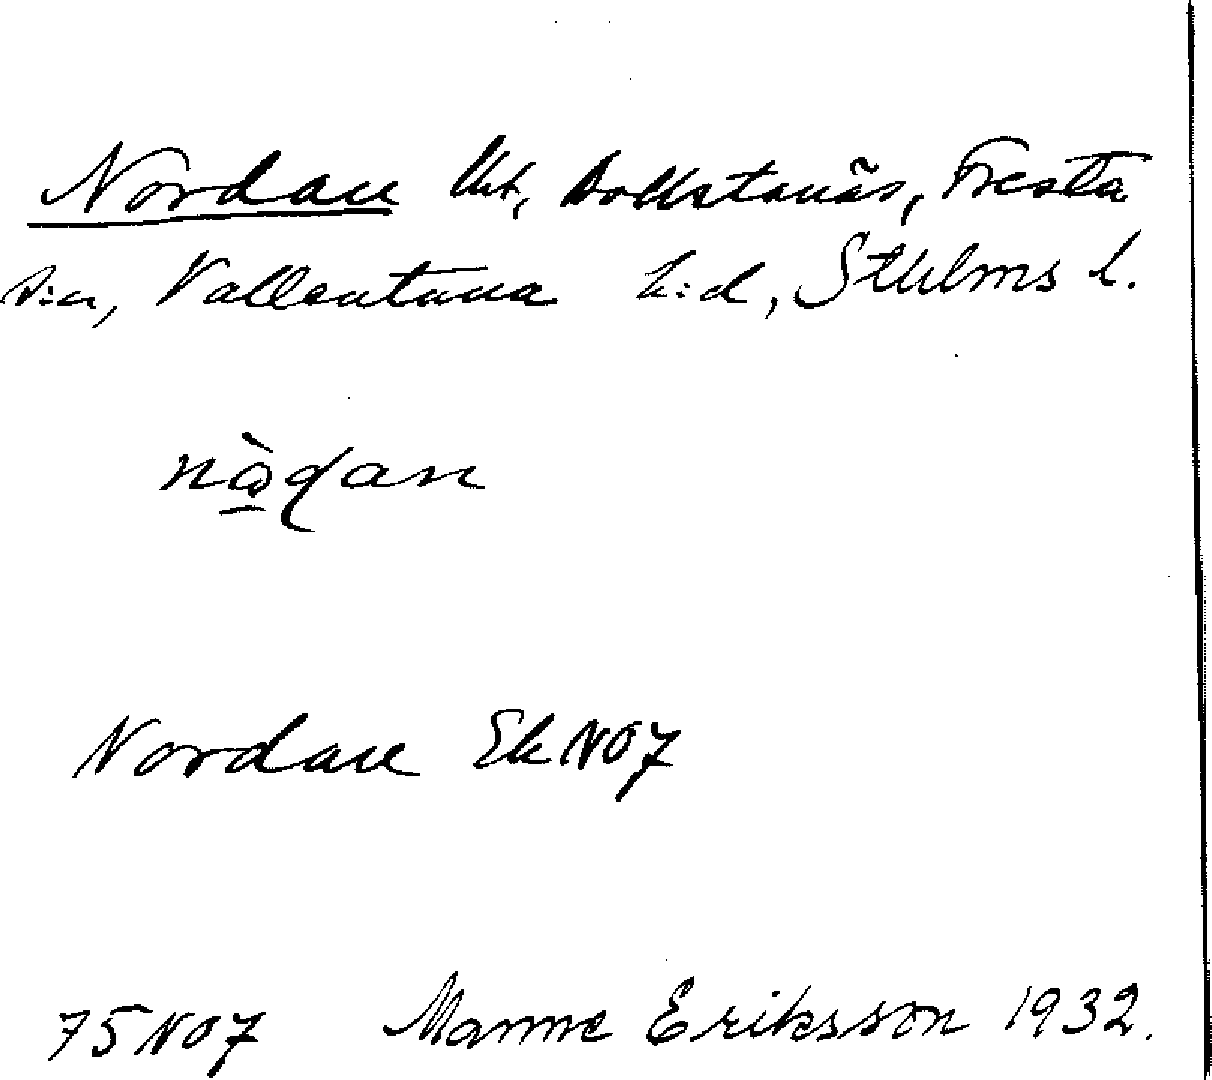 Nordan Utt, Bollstanäs, Fresta
s:n, Vallentuna h:d, Sthlms l.
nò̱ɖan
Nordan Ek NO7
75 NO7 Manne Eriksson 1932.